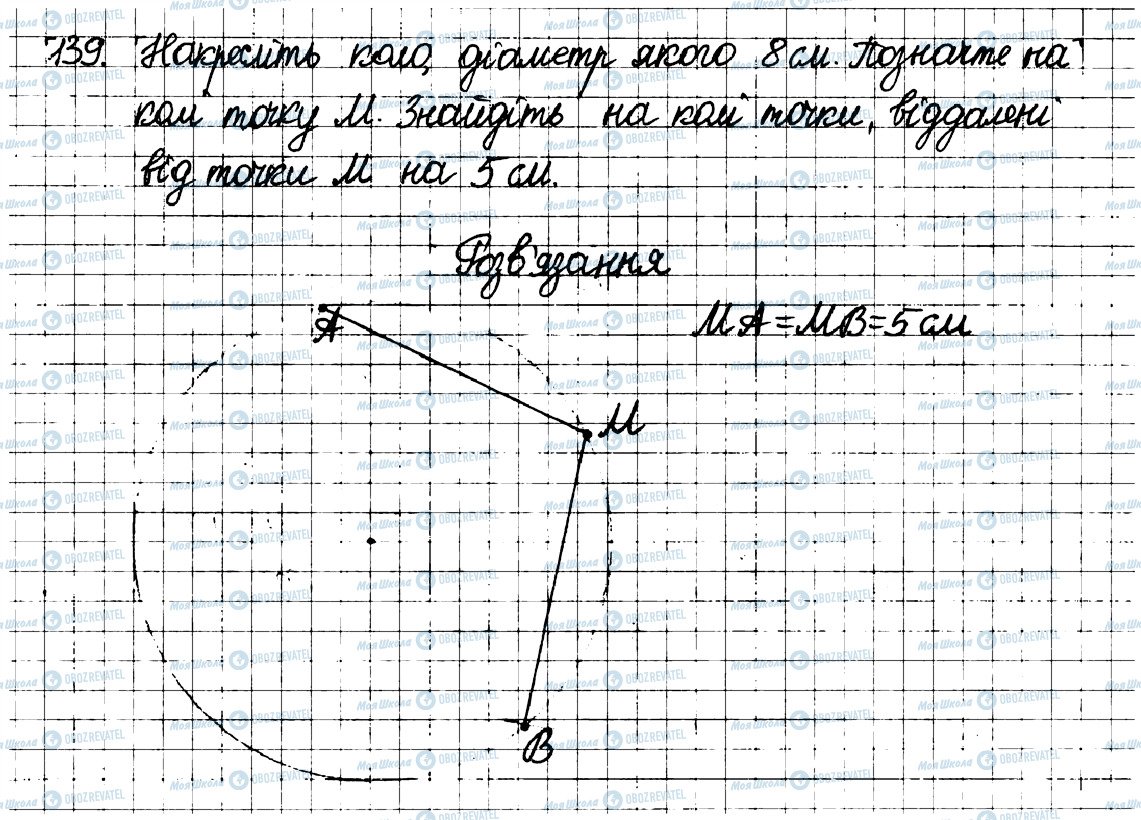 139. Накресліть коло, діаметр якого 8 см. Позначте на
колі точку М. Знайдіть на колі точки, віддалені
від точки М на 5 см.
Розв'язання
А
МА=МВ=5 см
М
В